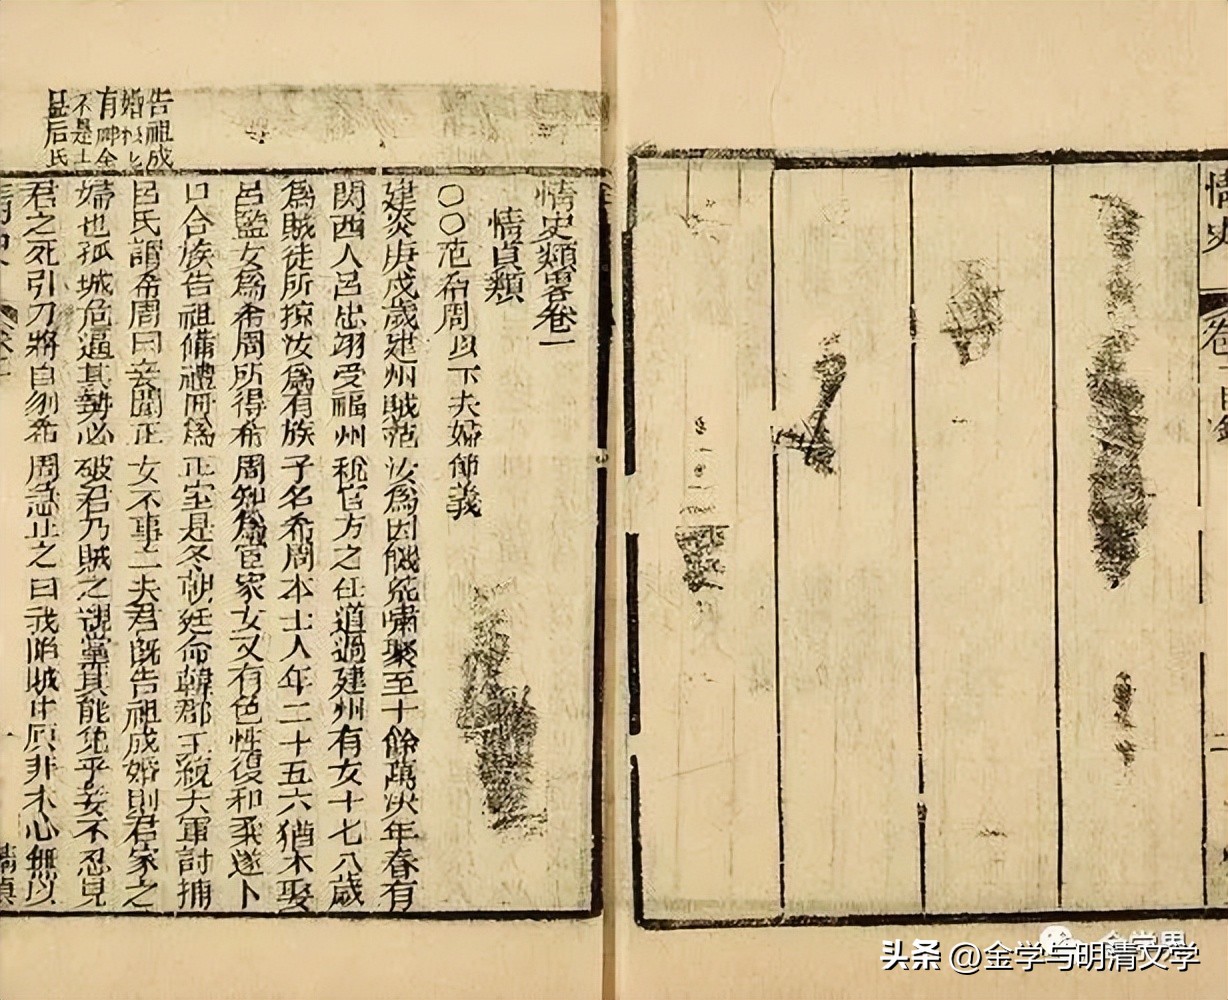 情史
二
情史類畧卷一
情貞類
○○范希周以下夫婦節義
建炎庚戌歲建州賊范汝爲因饑荒嘯聚至十餘萬次年春有
関西人呂忠翊受福州稅官方之任道過建州有女十七八歲
爲賊徒所掠汝爲有族子名希周本士人年二十五六猶未娶
呂監女爲希周所得希周知爲宦家女又有色性復和柔遂卜
日合族告祖備禮冊爲正室是冬朝廷命韓郡王統大軍討捕
呂氏謂希周曰妾聞正女不事二夫君既告祖成婚則君家之
婦也孤城危逼其勢必破君乃賊之親黨其能免乎妾不忍見
君之死引刀將自刎希周急止之曰我陷賊中原非本心無以
告祖成
婚
有
不是
氏
一
情貞
头条 @金学与明清文学